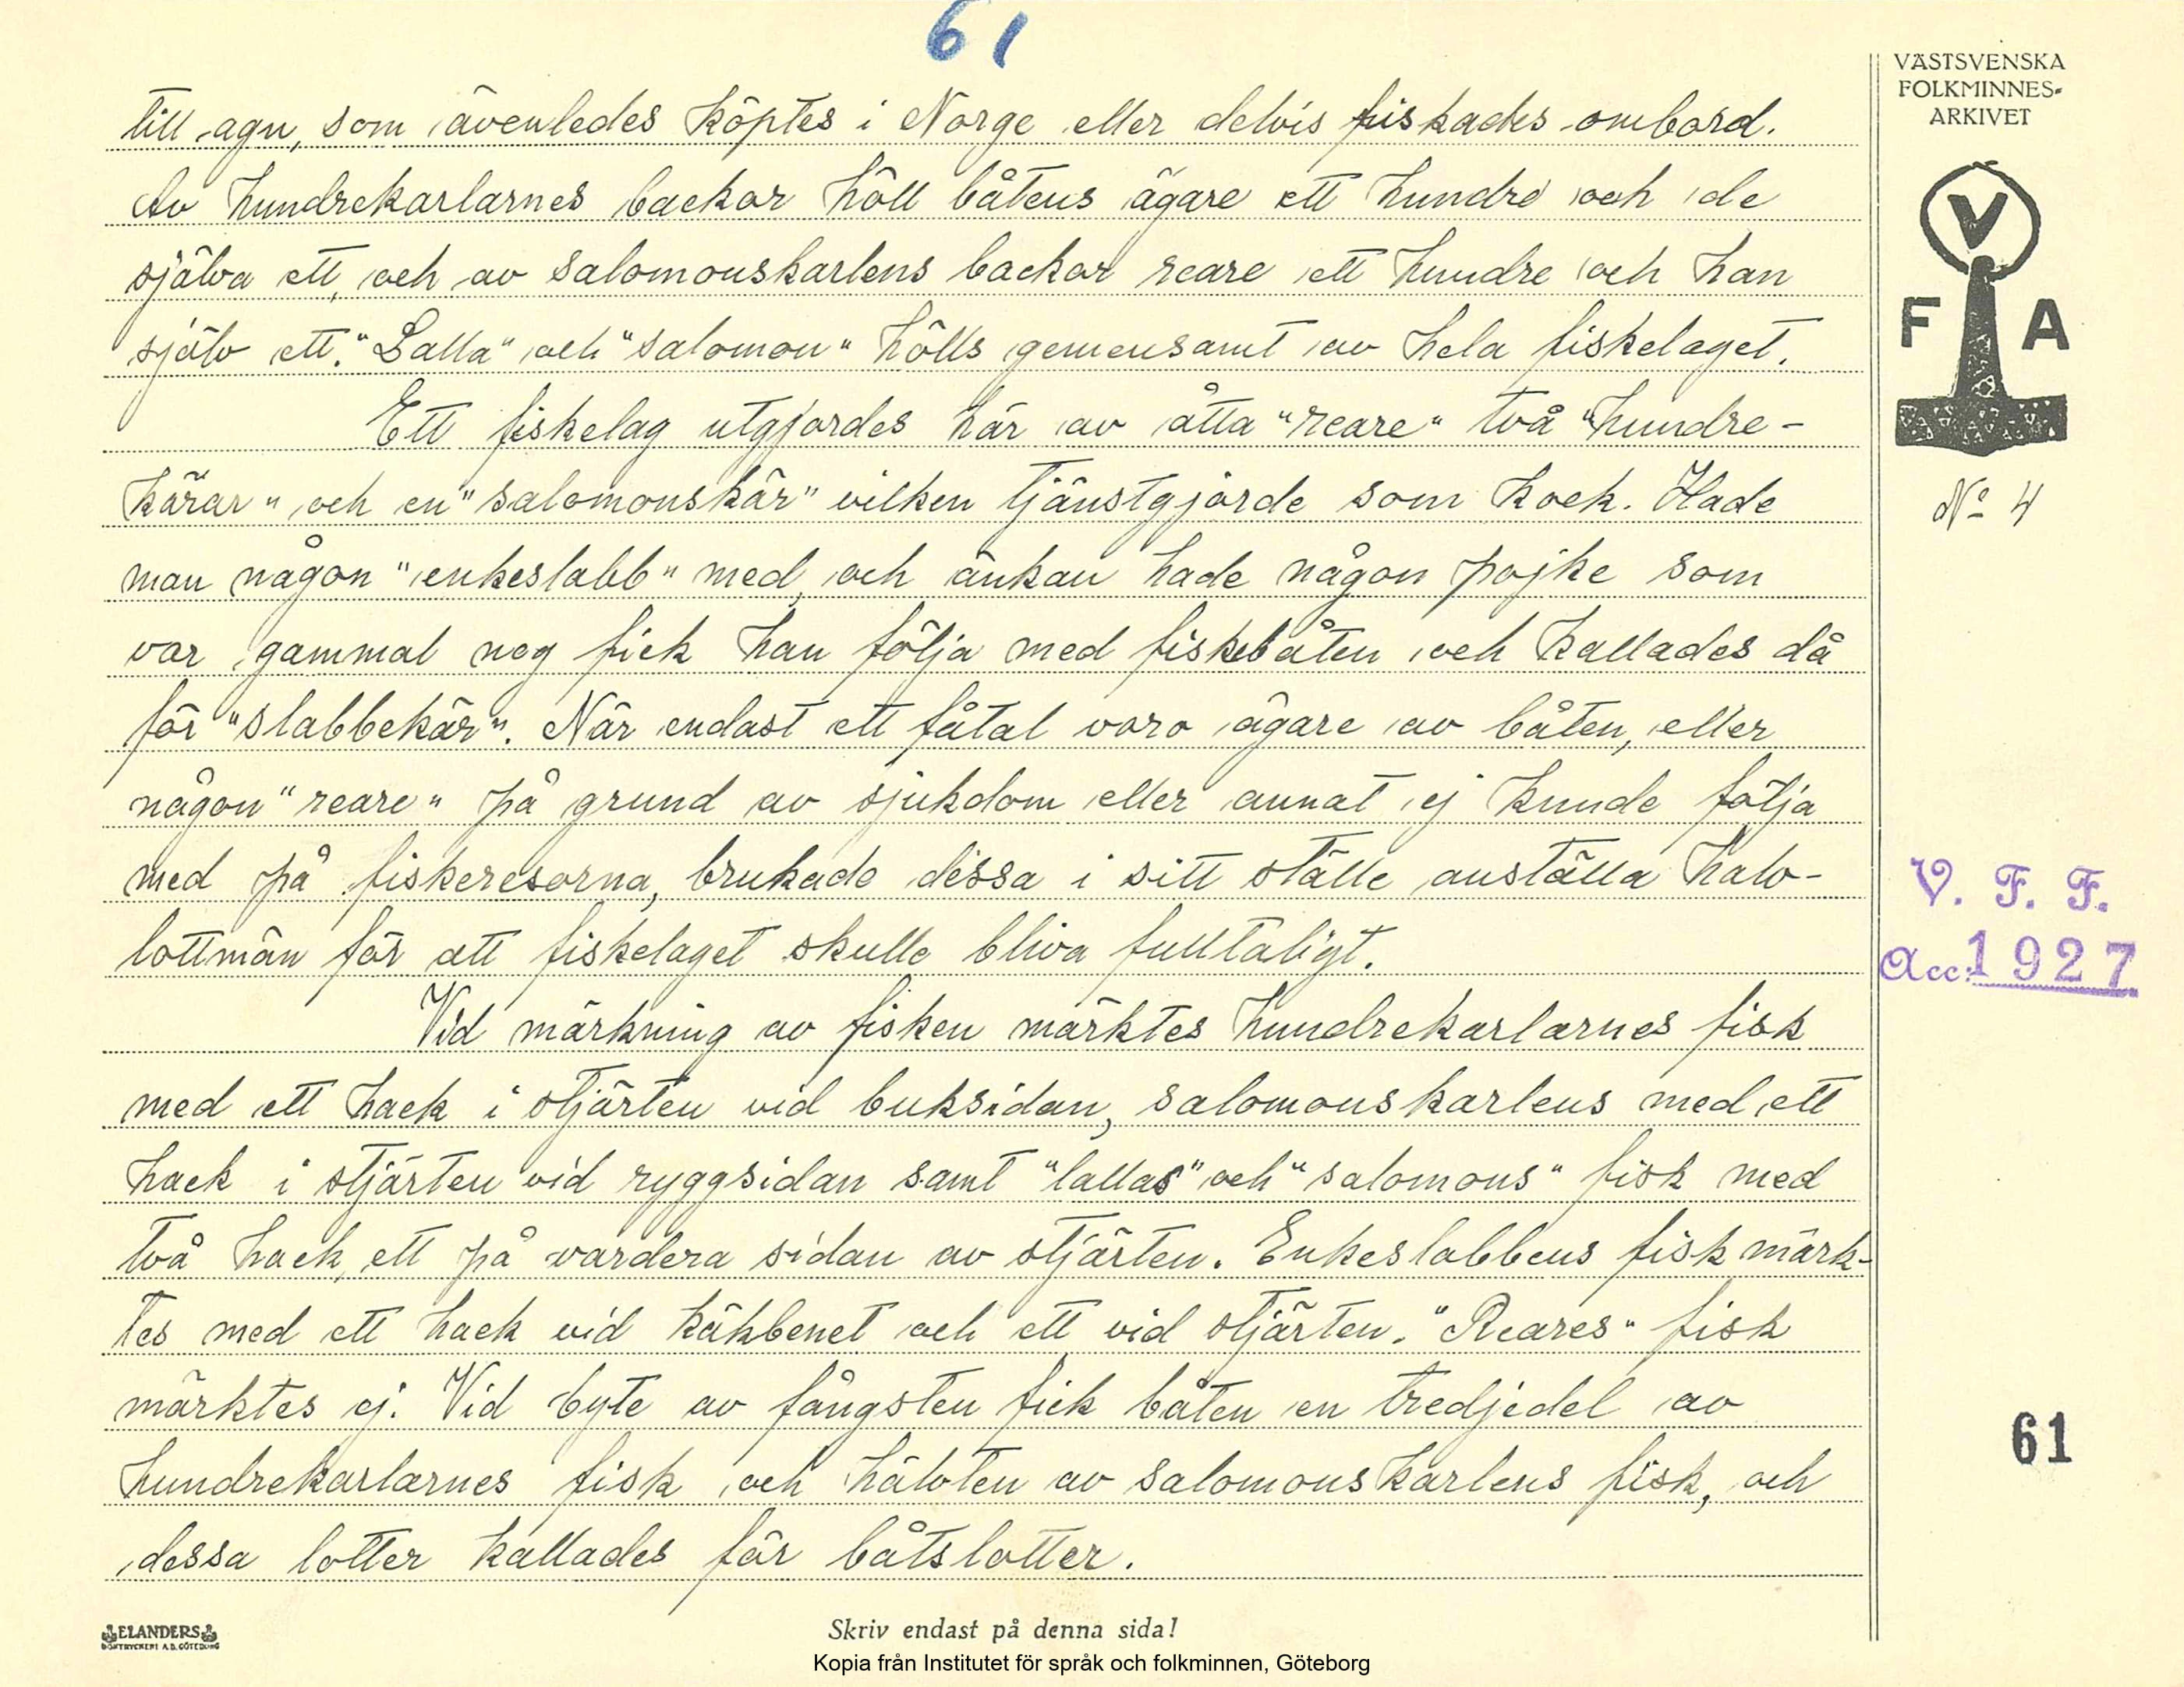 61
VÄSTSVENSKA
FOLKMINNES-
ARKIVET
V
F A
No 4
till agn, som ävenledes köptes i Norge eller delvis fiskades ombord.
Av hundrekarlarnes backor höll båtens ägare ett hundre och de
själva ett, och av salomonskarlens backor reare ett hundre och han
själv ett. "Lalla" och "salomon" hölls gemensamt av hela fiskelaget.
Ett fiskelag utgjordes här av åtta "reare" två "hundre-
kärar" och en "salomonskär" vilken tjänstgjorde som kock. Hade
man någon "enkeslabb" med, och änkan hade någon pojke som
var gammal nog fick han följa med fiskebåten och kallades då
för "slabbekär". När endast ett fåtal voro ägare av båten, eller
någon "reare" på grund av sjukdom eller annat ej kunde följa
med på fiskeresorna, brukade dessa i sitt ställe anställa halv-
lottmän för att fiskelaget skulle bliva fulltaligt.
Vid märkning av fisken märktes hundrekarlarnes fisk
med ett hack i stjärten vid buksidan, salomonskarlens med ett
hack i stjärten vid ryggsidan samt "lallas" och "salomons" fisk med
två hack, ett på vardera sidan av stjärten. Enkeslabbens fisk märk-
tes med ett hack vid käkbenet och ett vid stjärten. "Reares" fisk
märktes ej. Vid byte av fångsten fick båten en tredjedel av
hundrekarlarnes fisk och hälvten av salomonskarlens fisk, och
dessa lotter kallades för båtslotter.
V. F. F.
Acc. 1927
61
ELANDERS
BOKTRYCKERI A.B. GÖTEBORG
Skriv endast på denna sida!
Kopia från Institutet för språk och folkminnen, Göteborg